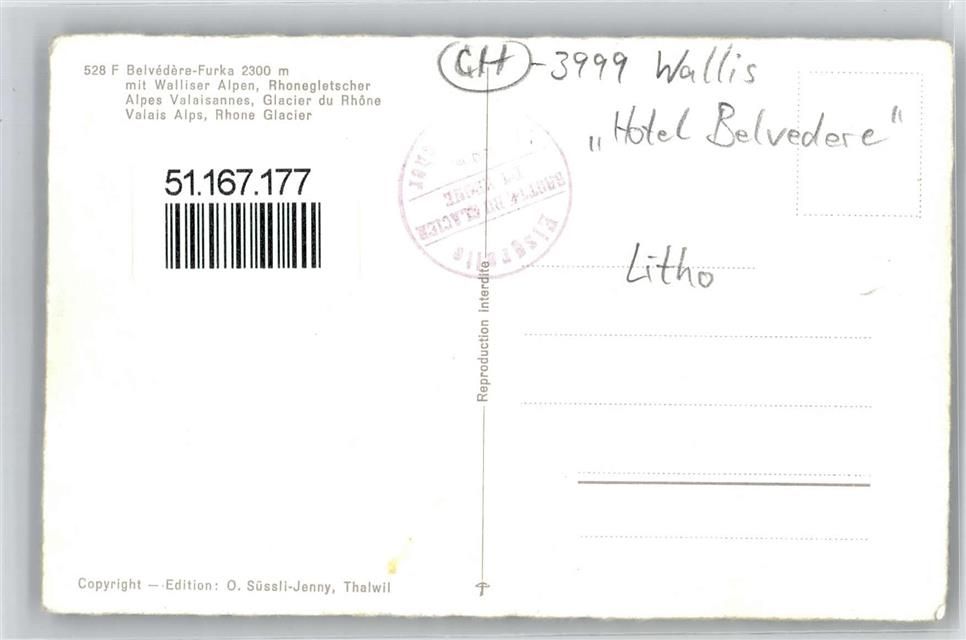 528 F Belvédère-Furka 2300 m
mit Walliser Alpen, Rhonegletscher
Alpes Valaisannes, Glacier du Rhône
Valais Alps, Rhone Glacier
51.167.177
CH -3999 Wallis
„Hotel Belvedere"
Litho
GROTTE DU GLACIER
Eisgrotte
Reproduction interdite
Copyright — Edition: O. Süssli-Jenny, Thalwil